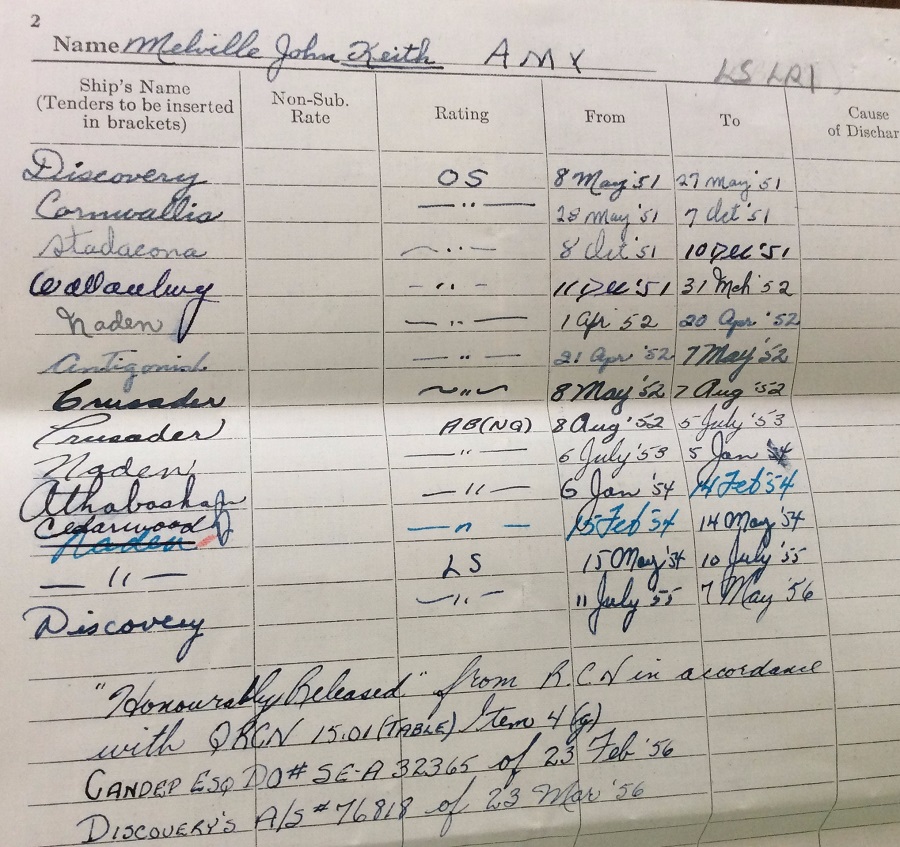 2
Name Melville John Keith AMX
LS LR1
Ship's Name (Tenders to be inserted in brackets) Non-Sub. Rate Rating From To Cause of Dischar
Discovery OS 8 May '51 27 May '51
Cornwallis — " — 28 May '51 7 Oct '51
Stadacona — " — 8 Oct '51 10 Dec '51
Wallaceburg - " - 11 Dec '51 31 Mch '52
Naden — " — 1 Apr '52 20 Apr '52
Antigonish — " — 21 Apr '52 7 May '52
Crusader — " — 8 May '52 7 Aug '52
Crusader AB(NQ) 8 Aug '52 5 July '53
Naden — " — 6 July '53 5 Jan '54
Athabaskan — " — 6 Jan '54 14 Feb '54
Cedarwood
Naden — " — 15 Feb '54 14 May '54
— " — LS 15 May '54 10 July '55
Discovery — " — 11 July '55 7 May '56
"Honourably Released" from R.C.N in accordance
with QRCN 15.01 (TABLE) Item 4 (g)
CANDEP ESQ DO# SE-A 32365 of 23 Feb '56
DISCOVERY'S A/S # 76818 of 23 Mar '56